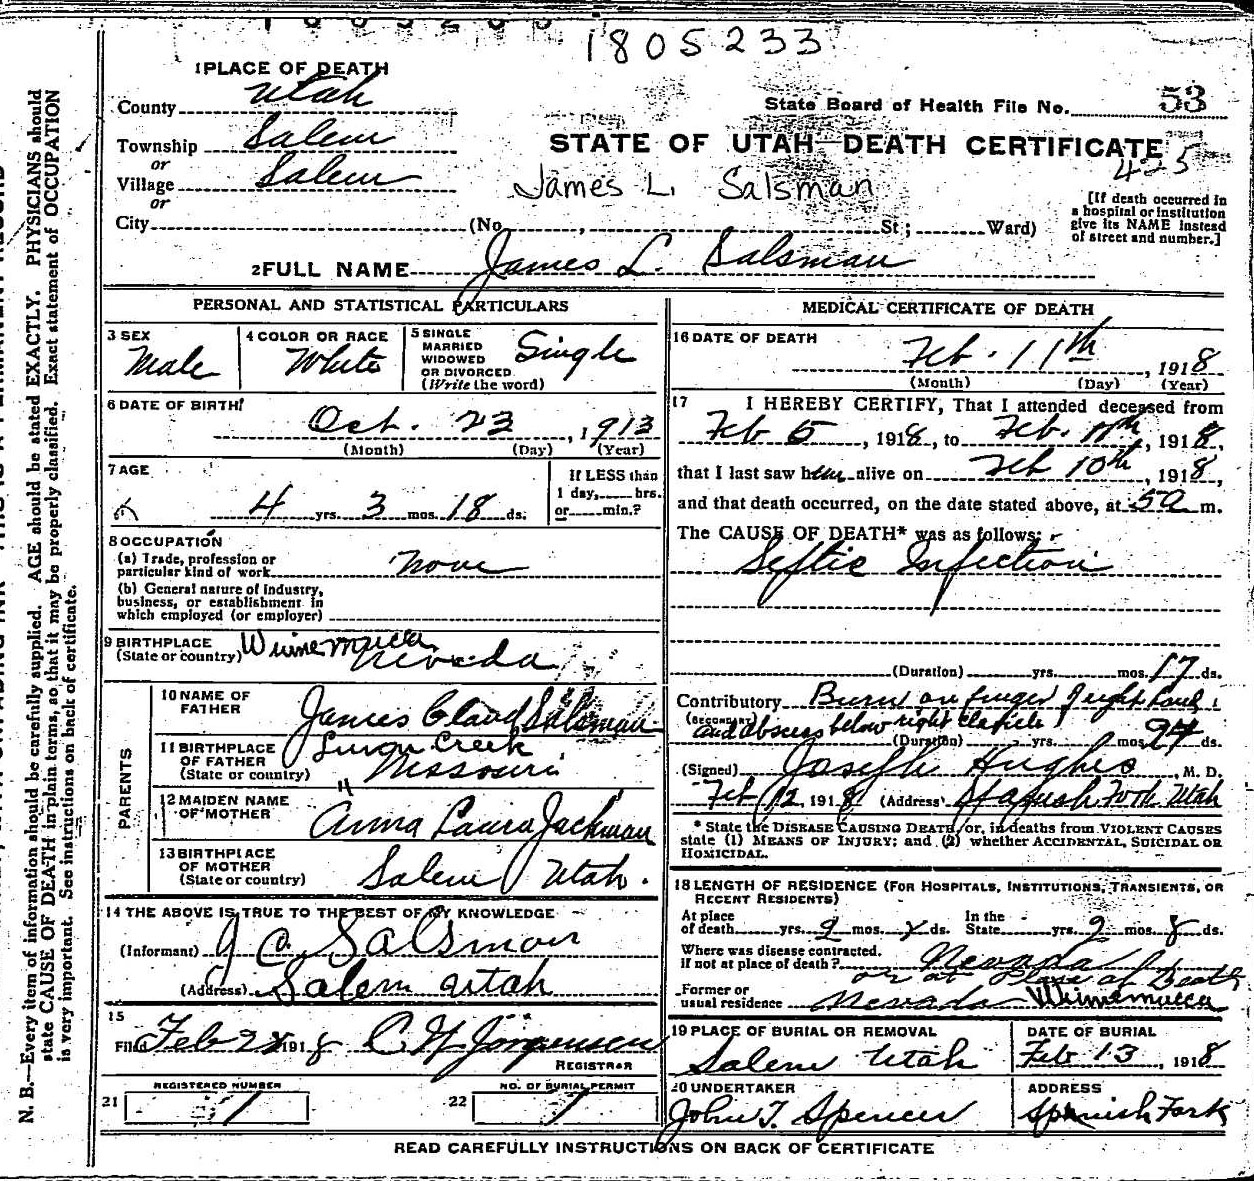 1805233
1 PLACE OF DEATH
County Utah
State Board of Health File No. 53
Township Salem
STATE OF UTAH—DEATH CERTIFICATE
425
or
Village Salem
James L. Salsman
or
City (No. , St.; Ward)
[If death occurred in
a hospital or institution
give its NAME instead
of street and number.]
2 FULL NAME James L. Salsman
PERSONAL AND STATISTICAL PARTICULARS
3 SEX
Male
4 COLOR OR RACE
White
5 SINGLE
MARRIED
WIDOWED
OR DIVORCED
(Write the word)
Single
6 DATE OF BIRTH
Oct. 23, 1913
(Month) (Day) (Year)
7 AGE
4 yrs. 3 mos. 18 ds.
If LESS than
1 day, hrs.
or min.?
8 OCCUPATION
(a) Trade, profession or
particular kind of work None
(b) General nature of industry,
business, or establishment in
which employed (or employer)
9 BIRTHPLACE
(State or country) Winnemucca
Nevada
PARENTS
10 NAME OF
FATHER
James Claud Salsman
11 BIRTHPLACE
OF FATHER
(State or country)
Creek
Missouri
12 MAIDEN NAME
OF MOTHER
Anna Laura Jackman
13 BIRTHPLACE
OF MOTHER
(State or country)
Salem Utah.
14 THE ABOVE IS TRUE TO THE BEST OF MY KNOWLEDGE
(Informant) J C. Salsman
(Address) Salem Utah
15
Filed Feb 28 1918 C W Jorgensen
REGISTRAR
REGISTERED NUMBER
21 1
NO. OF BURIAL PERMIT
22 1
MEDICAL CERTIFICATE OF DEATH
16 DATE OF DEATH
Feb. 11th, 1918
(Month) (Day) (Year)
17 I HEREBY CERTIFY, That I attended deceased from
Feb 5, 1918, to Feb. 11th, 1918,
that I last saw him alive on Feb 10th, 1918,
and that death occurred, on the date stated above, at 5 a m.
The CAUSE OF DEATH* was as follows:
Seftic Infection
(Duration) yrs. mos. 17 ds.
Contributory Burn on finger of right hand
(SECONDARY) and abscess below right clavicle
(Duration) yrs. mos. 24 ds.
(Signed) Joseph Hughes, M. D.
Feb 12, 1918 (Address) Spanish Fork Utah
* State the DISEASE CAUSING DEATH, or, in deaths from VIOLENT CAUSES
state (1) MEANS OF INJURY; and (2) whether ACCIDENTAL, SUICIDAL OR
HOMICIDAL.
18 LENGTH OF RESIDENCE (FOR HOSPITALS, INSTITUTIONS, TRANSIENTS, OR
RECENT RESIDENTS)
At place
of death yrs. 2 mos. 8 ds.
In the
State yrs. 2 mos. 8 ds.
Where was disease contracted.
If not at place of death? Nevada
or at Place of Death
Former or
usual residence Nevada Winnemucca
19 PLACE OF BURIAL OR REMOVAL
Salem Utah
DATE OF BURIAL
Feb 13, 1918
20 UNDERTAKER
John T. Spencer
ADDRESS
Spanish Fork
READ CAREFULLY INSTRUCTIONS ON BACK OF CERTIFICATE
N. B.—Every item of information should be carefully supplied. AGE should be stated EXACTLY. PHYSICIANS should
state CAUSE OF DEATH in plain terms, so that it may be properly classified. Exact statement of OCCUPATION
is very important. See instructions on back of certificate.